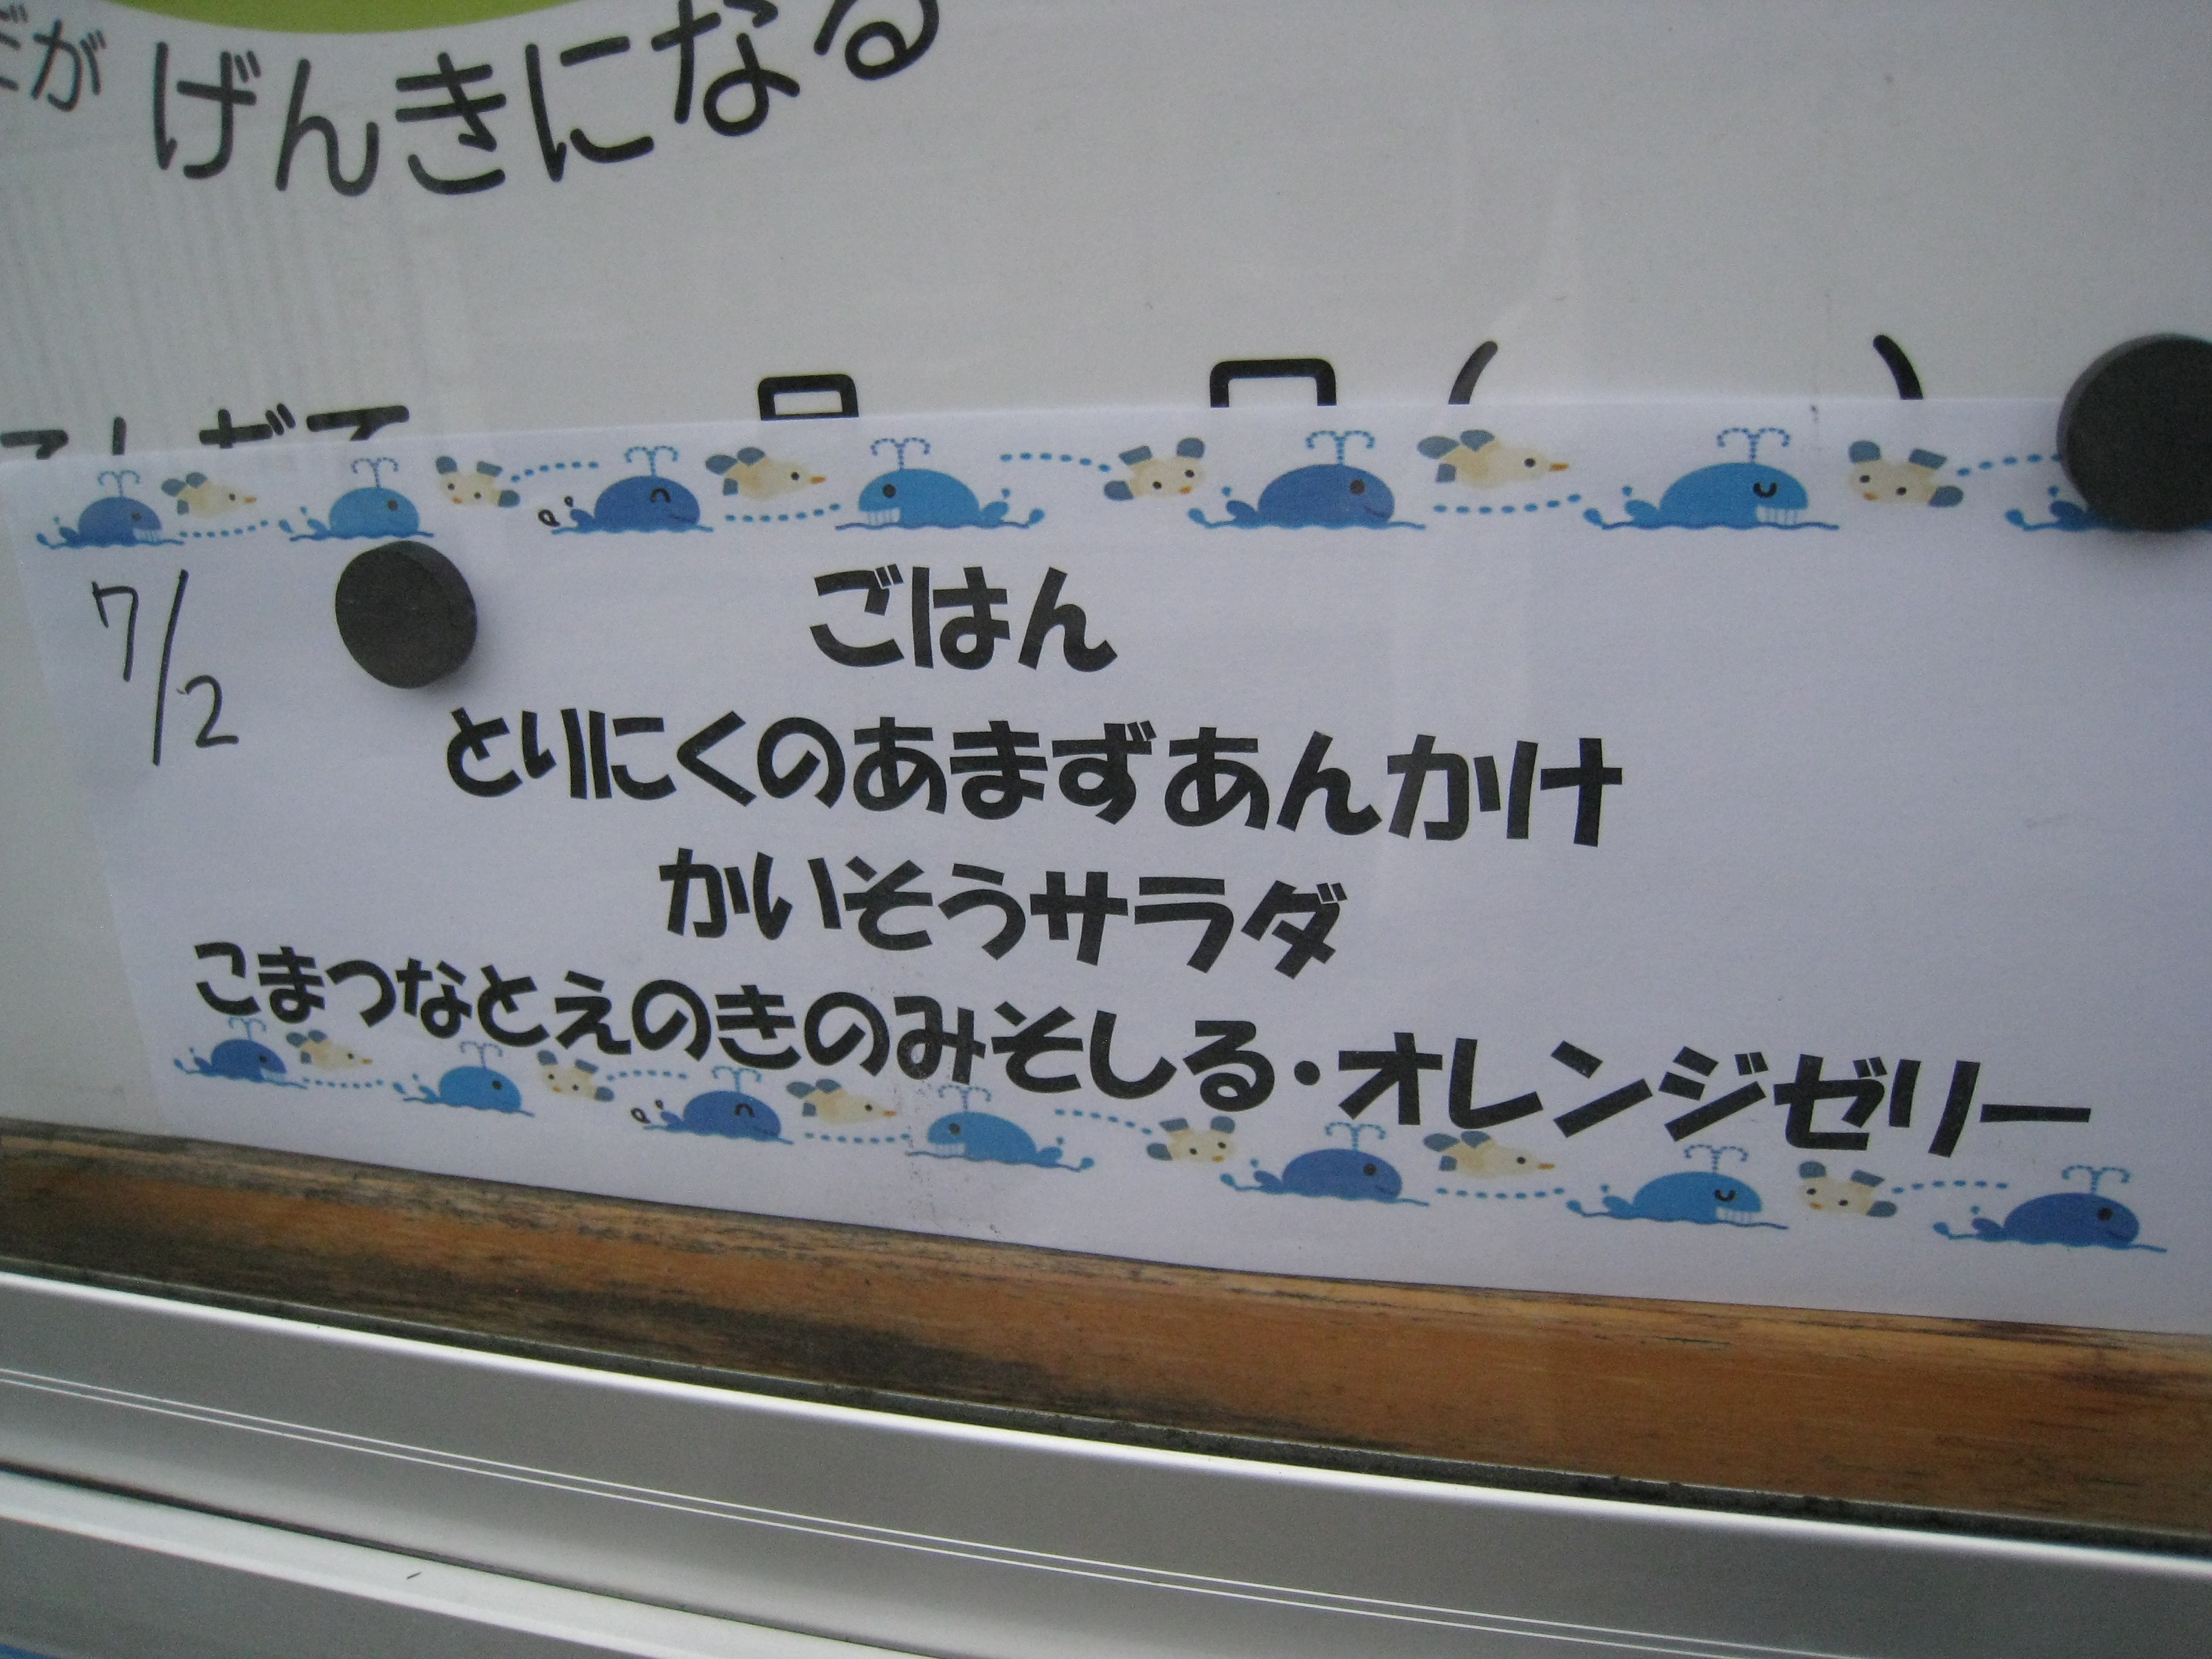 がげんきになる
7/2
ごはん
とりにくのあまずあんかけ
かいそうサラダ
こまつなとえのきのみそしる・オレンジゼリー